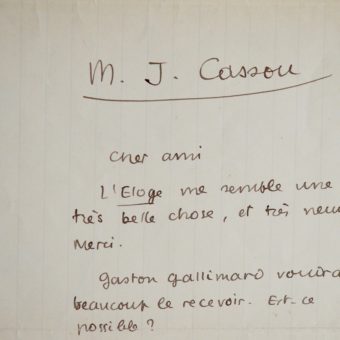 M. J. Cassou
Cher ami
L'Eloge me semble une
très belle chose, et très
Merci.
Gaston Gallimard
beaucoup le recevoir. Est-ce
possible ?